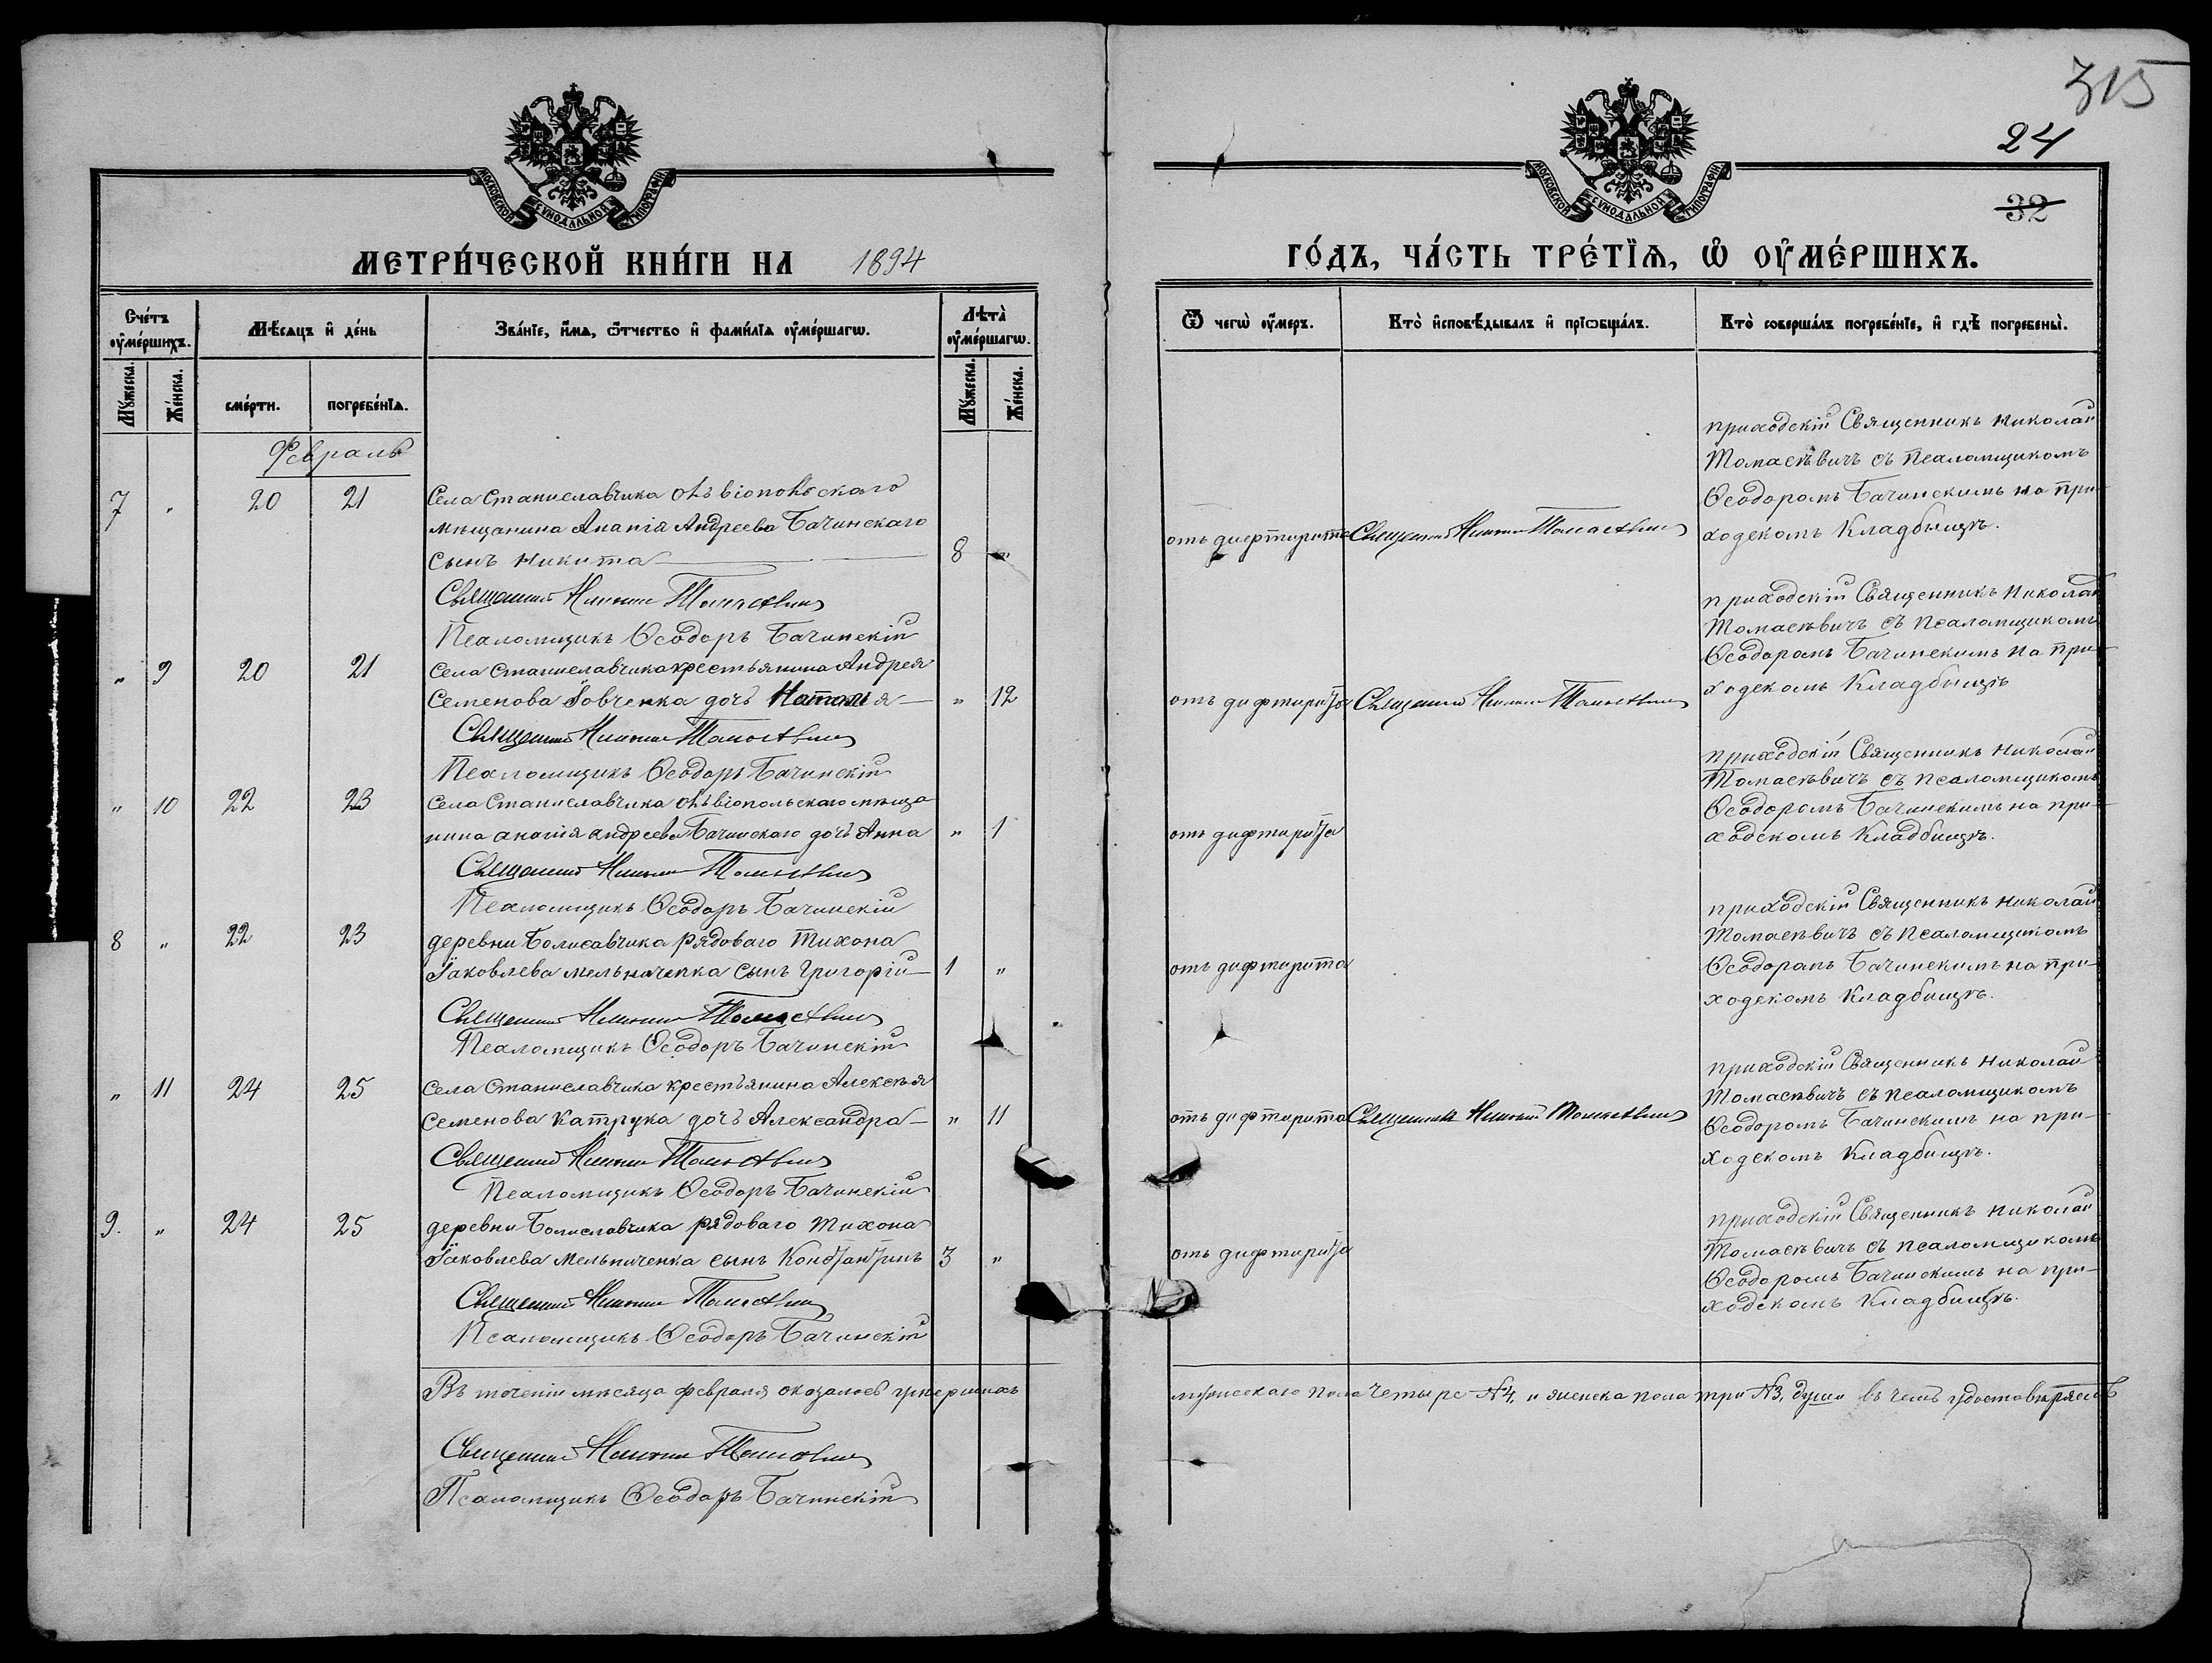 315
24
32
МОСКОВСКОЙ СѴНОДАЛЬНОЙ ТИПОГРАФІИ
МОСКОВСКОЙ СѴНОДАЛЬНОЙ ТИПОГРАФІИ
МЕТРИ́ЧЕСКОЙ КНИ́ГИ НА 1894
ГО́ДЪ, ЧА́СТЬ ТРЕ́ТЇѦ, Ѡ҆ ОУ҆МЕ́РШИХЪ.
Счéтъ оу҆мéршихъ.
Мѣ́сѧцъ и҆ де́нь
Зва́нїе, и҆́мѧ, ѻ҆́тчество и҆ фами́лїѧ оу҆ме́ршагѡ.
Лѣ́та̀ оу҆ме́ршагѡ.
Ѿ чегѡ̀ оу҆́меръ.
Кто̀ и҆сповѣ́дывалъ и҆ прїѡбща́лъ.
Кто̀ соверша́лъ погребе́нїе, и҆ гдѣ̀ погребены̀.
Мꙋ́жеска.
Же́нска.
сме́рти.
погребе́нїѧ.
Мꙋ́жеска.
Же́нска.
Февраль
7 " 20 21 Села Станиславчика
мѣщанина Ананія Андреева Бачинскаго
сынъ Никита 8 "
Священникъ Николай Томасѣвичъ
Псаломщикъ Ѳеодоръ Бачинскій
отъ дифтерита Священникъ Николай Томасѣвичъ
приходскій Священникъ Николай
Томасѣвичъ съ Псаломщикомъ
Ѳеодоромъ Бачинскимъ на при-
ходскомъ Кладбищѣ.
" 9 20 21 Села Станиславчика крестьянина Андрея
Семенова Іовченка дочь Наталія " 12
Священникъ Николай Томасѣвичъ
Псаломщикъ Ѳеодоръ Бачинскій
отъ дифтирита Священникъ Николай Томасѣвичъ
приходскій Священникъ Николай
Томасѣвичъ съ Псаломщикомъ
Ѳеодоромъ Бачинскимъ на при-
ходскомъ Кладбищѣ
" 10 22 23 Села Станиславчика ольвіопольскаго мѣща
нина Ананія Андреева Бачинскаго дочь Анна " 1
Священникъ Николай Томасѣвичъ
Псаломщикъ Ѳеодоръ Бачинскій
отъ дифтирита
приходскій Священникъ Николай
Томасѣвичъ съ Псаломщикомъ
Ѳеодоромъ Бачинскимъ на при-
ходскомъ Кладбищѣ.
8 " 22 23 деревни рядоваго Тихона
Іаковлева Мельниченка сынъ Григорій 1 "
Священникъ Николай Томасѣвичъ
Псаломщикъ Ѳеодоръ Бачинскій
отъ дифтирита
приходскій Священникъ Николай
Томасѣвичъ съ Псаломщикомъ
Ѳеодоромъ Бачинскимъ на при-
ходскомъ Кладбищѣ.
" 11 24 25 Села Станиславчика крестьянина Алексѣя
Семенова Катрука дочь Александра " 11
Священникъ Николай Томасѣвичъ
Псаломщикъ Ѳеодоръ Бачинскій
отъ дифтирита Священникъ Николай Томасѣвичъ
приходскій Священникъ Николай
Томасѣвичъ съ псаломщикомъ
Ѳеодоромъ Бачинскимъ на при-
ходскомъ Кладбищѣ.
9. " 24 25 деревни Болиславчика рядоваго Тихона
Іаковлева Мельниченка сынъ Константинъ 3 "
Священникъ Николай Томасѣвичъ
Псаломщикъ Ѳеодоръ Бачинскій
отъ дифтирита
приходскій Священникъ Николай
Томасѣвичъ съ псаломщикомъ
Ѳеодоромъ Бачинскимъ на при-
ходскомъ Кладбищѣ.
Въ теченіи мѣсяца февраля оказалось умершихъ мужескаго пола четыре №4, и женска пола три №3, души въ чемъ удостовѣряемъ
Священникъ Николай Томасѣвичъ
Псаломщикъ Ѳеодоръ Бачинскій